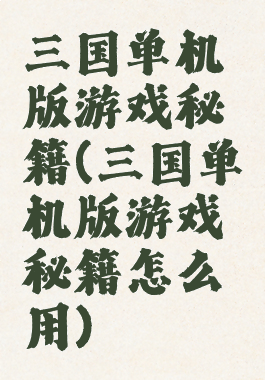 三国单机
版游戏秘
籍(三国单
机版游戏
秘籍怎么
用)